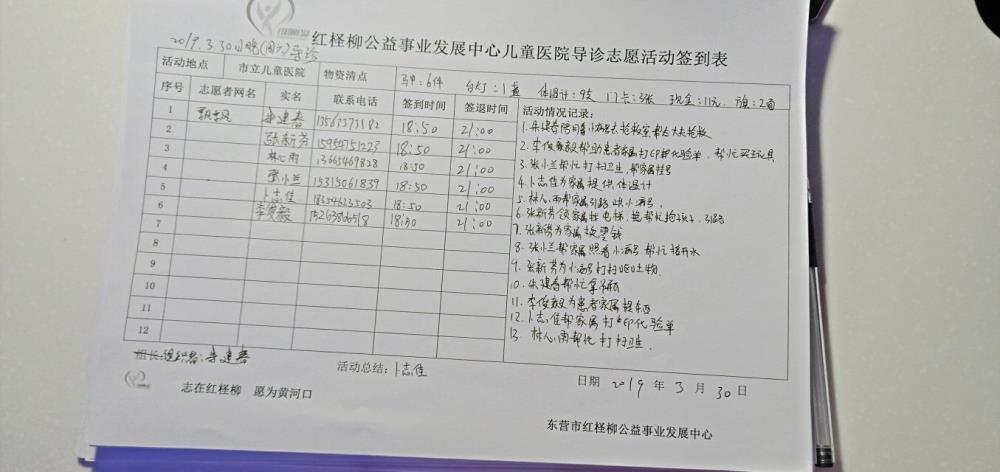 红柽柳公益事业发展中心儿童医院导诊志愿活动签到表
2019.3.30日晚 导诊
活动地点 市立儿童医院 物资清点 马甲:6件 台灯:1盏 体温计:9支 门卡:3张 现金:11元 旗:2面
序号 志愿者网名 实名 联系电话 签到时间 签退时间 活动情况记录:
1 朱建春 13563731182 18:50 21:00
2 张新芳 15954751223 18:50 21:00
3 林心雨 13665469828 18:50 21:00
4 张小兰 15315061839 18:50 21:00
5 卜志佳 18354623503 18:50 21:00
6 李俊毅 15263806518 18:50 21:00
7
8
9
10
11
12
1.朱建春陪同 去抢救室帮大夫抢救
2.李俊毅帮助患者家属打印化验单,帮忙买玩具
3.张小兰帮忙打扫卫生,帮家属挂号
4.卜志佳为家属提供体温计
5.林心雨帮家属引路 小病号,
6.张新芳领家属坐电梯,并帮忙抱孩子,引路
7.张新芳为家属换零钱
8.张小兰帮家属照看小病号 帮忙接开水
9.张新芳为小病号打扫呕吐物.
10.朱建春帮忙拿吊瓶
11.李俊毅为患者家属提东西
12.卜志佳帮家属打印化验单
13.林心雨帮忙打扫卫生.
组长:组织者:朱建春
活动总结:卜志佳
日期 2019 年 3 月 30 日
志在红柽柳 愿为黄河口
东营市红柽柳公益事业发展中心